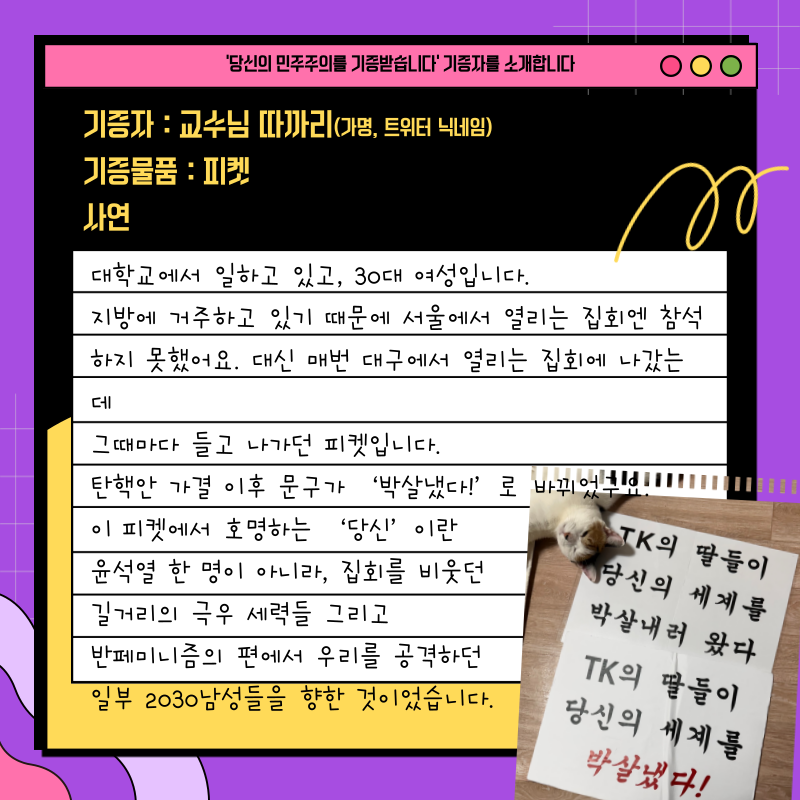 '당신의 민주주의를 기증받습니다' 기증자를 소개합니다
기증자 : 교수님 따까리(가명, 트위터 닉네임)
기증물품 : 피켓
사연
대학교에서 일하고 있고, 30대 여성입니다.
지방에 거주하고 있기 때문에 서울에서 열리는 집회엔 참석
하지 못했어요. 대신 매번 대구에서 열리는 집회에 나갔는
데
그때마다 들고 나가던 피켓입니다.
탄핵안 가결 이후 문구가 '박살냈다!' 로 바뀌었구요.
이 피켓에서 호명하는 '당신' 이란
윤석열 한 명이 아니라, 집회를 비웃던
길거리의 극우 세력들 그리고
반페미니즘의 편에서 우리를 공격하던
일부 2030남성들을 향한 것이었습니다.
TK의 딸들이
당신의 세계를
박살내러 왔다
TK의 딸들이
당신의 세계를
박살냈다!